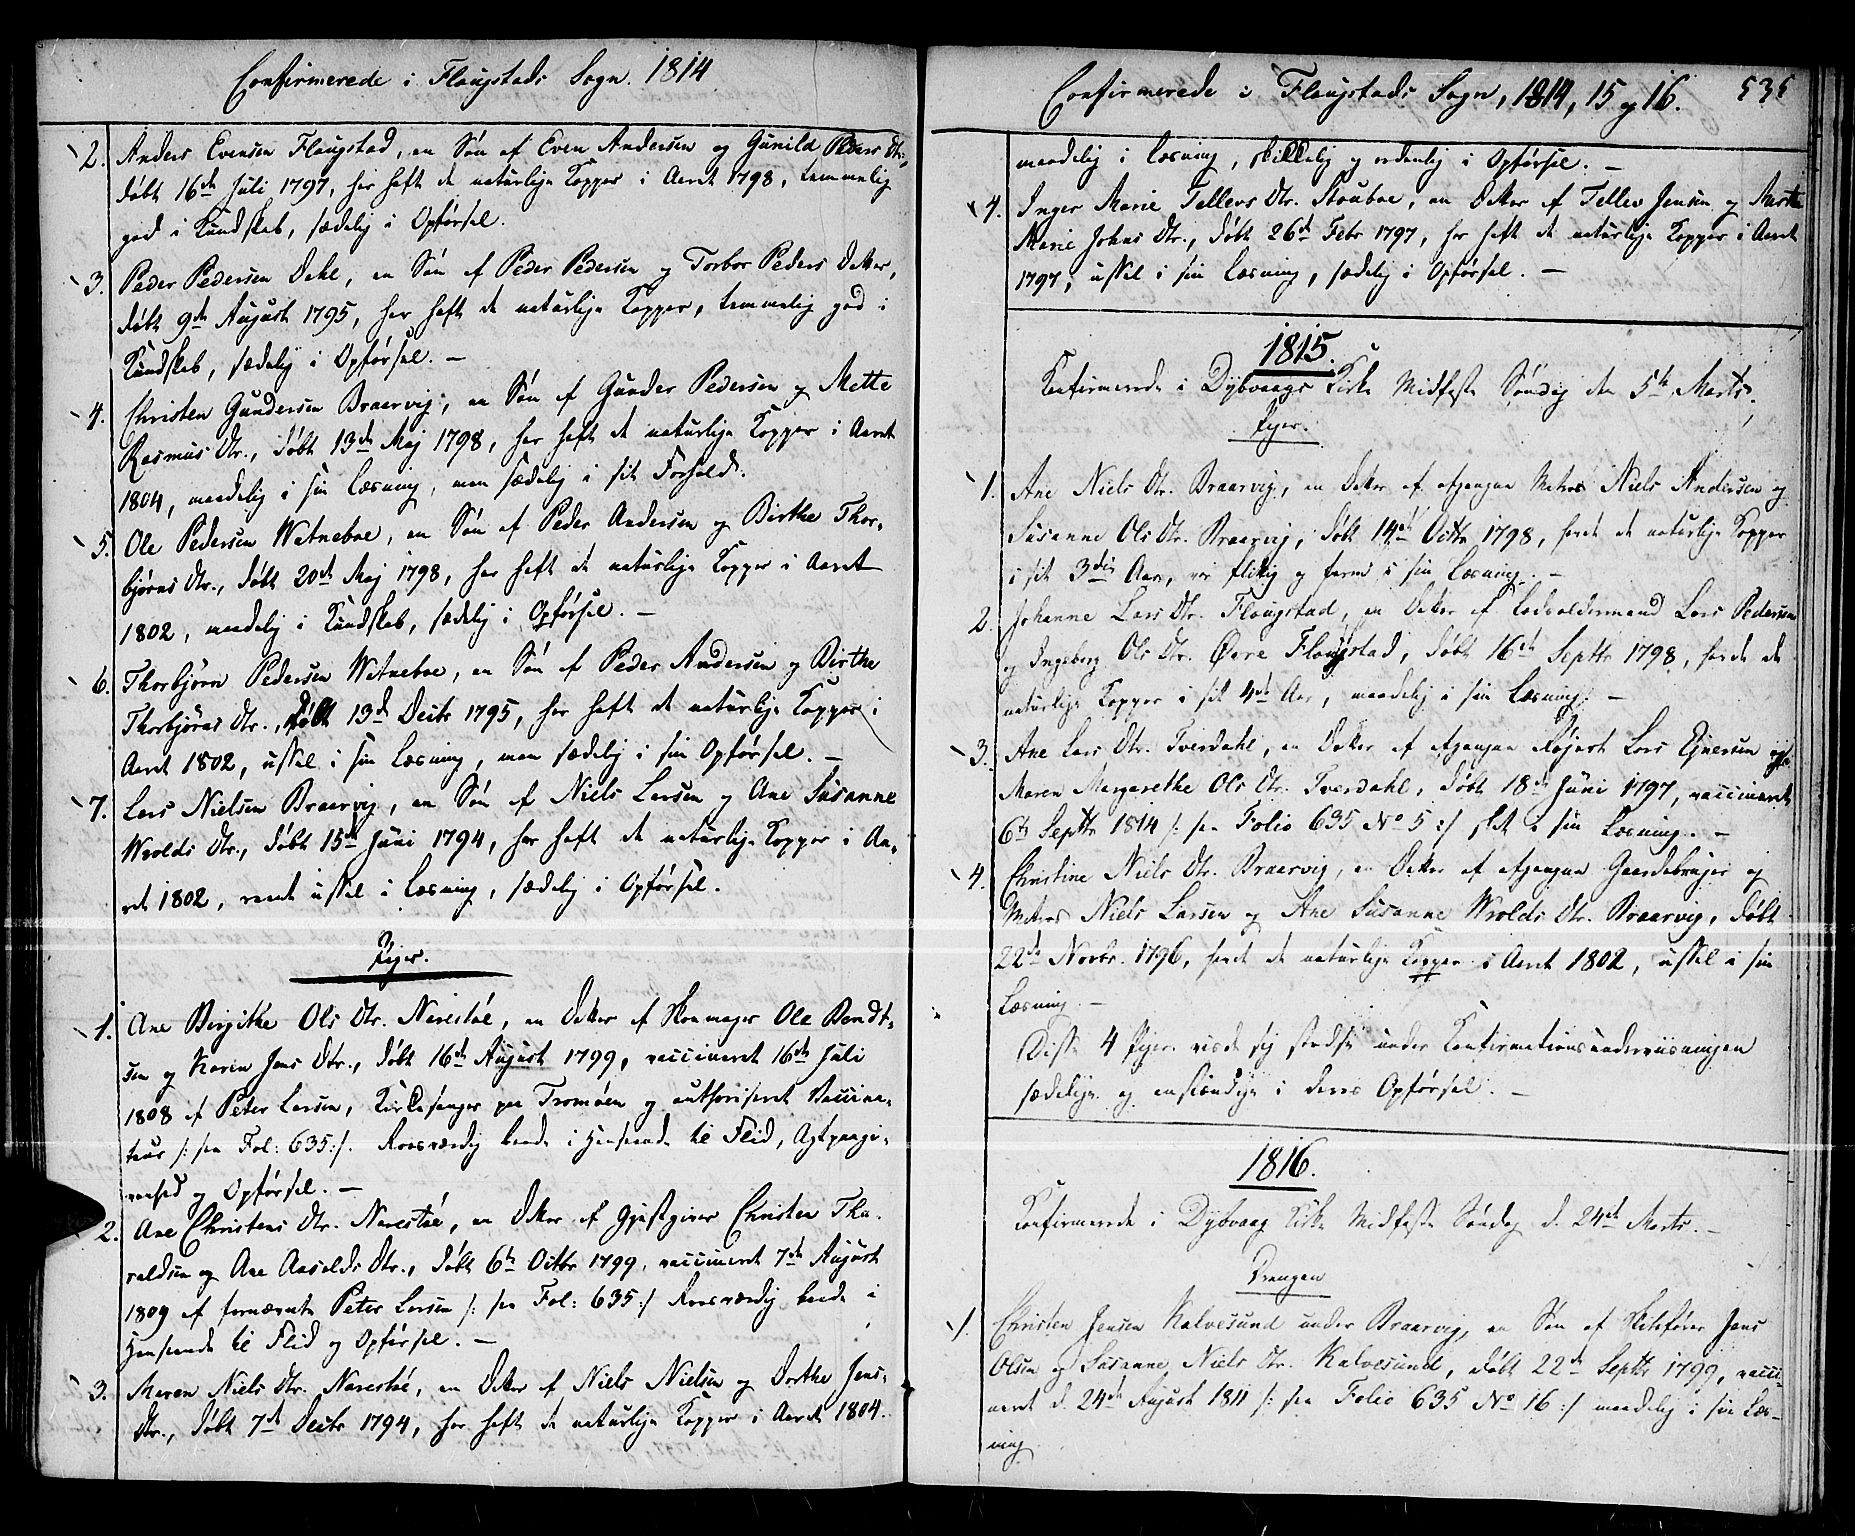 Confirmerede i Flaugstads Sogn. 1814
2. Anders Evensen Flaugstad, en Søn af Even Andersen og Gunild Peders Dtr.
døbt 16de Juli 1797, har haft de naturlige Kopper i Aaret 1798, temmelig
god i Kundskab, sædelig i Opførsel.
3. Peder Pedersen Dahl, en Søn af Peder Pedersen og Torbor Peders Datter,
døbt 9de August 1795, har haft de naturlige Kopper, temmelig god i
Kundskab, sædelig i Opførsel. —
4. Christen Gundersen Braarvig, en Søn af Gunder Pedersen og Mette
Rasmus Dtr., døbt 13de Maj 1798, har haft de naturlige Kopper i Aaret
1804, maadelig i sin Læsning, men sædelig i sit Forhold.
5. Ole Pedersen Watneboe, en Søn af Peder Andersen og Birthe Thor-
bjørns Dtr., døbt 20de Maj 1798, har haft de naturlige Kopper i Aaret
1802, maadelig i Kundskab, sædelig i Opførsel. —
6. Thorbjørn Pedersen Watneboe, en Søn af Peder Andersen og Birthe
Thorbjørns Dtr., døbt 13de Decbr 1795, har haft de naturlige Kopper i
Aaret 1802, ussel i sin Læsning, men sædelig i sin Opførsel. —
7. Lars Nielsen Braarvig, en Søn af Niels Larsen og Ane Susanne
Wrolds Dtr., døbt 15de Juni 1794, har haft de naturlige Kopper i Aa-
ret 1802, meget ussel i Læsning, sædelig i Opførsel.
Piger.
1. Ane Birgithe Ols Dtr. Narestøe, en Datter af Skomager Ole Bendt-
sen og Karen Jens Dtr., døbt 16de August 1799, vaccineret 16de Juli
1808 af Peter Larsen, Kirkesanger paa Tromøen og authoriseret Vaccina-
teur /: see Fol: 635:/. Roesværdig baade i Henseende til Flid, Agtpaagi-
venhed og Opførsel. —
2. Ane Christens Dtr. Narestøe, en Datter af Gjestgiver Christen Tha-
raldsen og Ane Aasolds Dtr., døbt 6te Octbr 1799, vaccineret 7de August
1809 af fornævnte Peter Larsen /: see Fol: 635:/ Roesværdig baade i
Henseende til Flid og Opførsel. —
3. Maren Niels Dtr. Narestøe, en Datter af Niels Nielsen og Dorthe Jens-
Dtr., døbt 7de Decbr 1794, har haft de naturlige Kopper i Aaret 1804.
Confirmerede i Flaugstads Sogn, 1814, 15 og 16. 535
maadelig i Læsning, skikkelig og ordentlig i Opførsel. —
4. Inger Marie Tellevs Dtr. Stouboe, en Datter af Tellev Jensen og Marthe
Marie Johns Dtr., døbt 26de Febr 1797, har haft de naturlige Kopper i Aaret
1797, ussel i sin Læsning, sædelig i Opførsel. —
1815.
Confirmerede i Dybvaags Kirke Midfaste Søndag den 5te Marts.
Piger.
1. Ane Niels Dtr. Braarvig, en Datter af afgangne Matros Niels Andersen og
Susanne Ols Dtr. Braarvig, døbt 14de Octbr 1798, havde de naturlige Kopper
i sit 3die Aar, var flittig og færm i sin Læsning. —
2. Johanne Lars Dtr. Flaugstad, en Datter af Lodsoldermand Lars Pedersen
og Ingeborg Ols Dtr. Øvre Flaugstad, døbt 16de Septbr 1798, havde de
naturlige Kopper i sit 4de Aar, maadelig i sin Læsning. —
3. Ane Lars Dtr. Tverdahl, en Datter af afgangne Lars Ejnersen og
Maren Margarethe Ols Dtr. Tverdahl, døbt 18de Juni 1797, vaccineret
6te Septbr 1814 /: see Folio 635 No 5:/ slet i sin Læsning. —
4. Christine Niels Dtr. Braarvig, en Datter af afgangne Gaardebruger og
Matros Niels Larsen og Ane Susanne Wrolds Dtr. Braarvig, døbt
22de Novbr. 1796, havde de naturlige Kopper i Aaret 1802, ussel i sin
Læsning. —
Disse 4 Piger viste sig stedse under Confirmationsunderviisningen
sædelige og anstændige i deres Opførsel. —
1816.
Confirmerede i Dybvaag Kirke Midfaste Søndag d. 24de Marts. —
Drengen
1. Christen Jensen Kalvesund under Braarvig, en Søn af Skibsfører Jens
Olsen og Susanne Niels Dtr. Kalvesund, døbt 22de Septbr 1799, vacci-
neret d. 24de August 1811 /: see Folio 635 No 16:/ maadelig i sin Læs-
ning